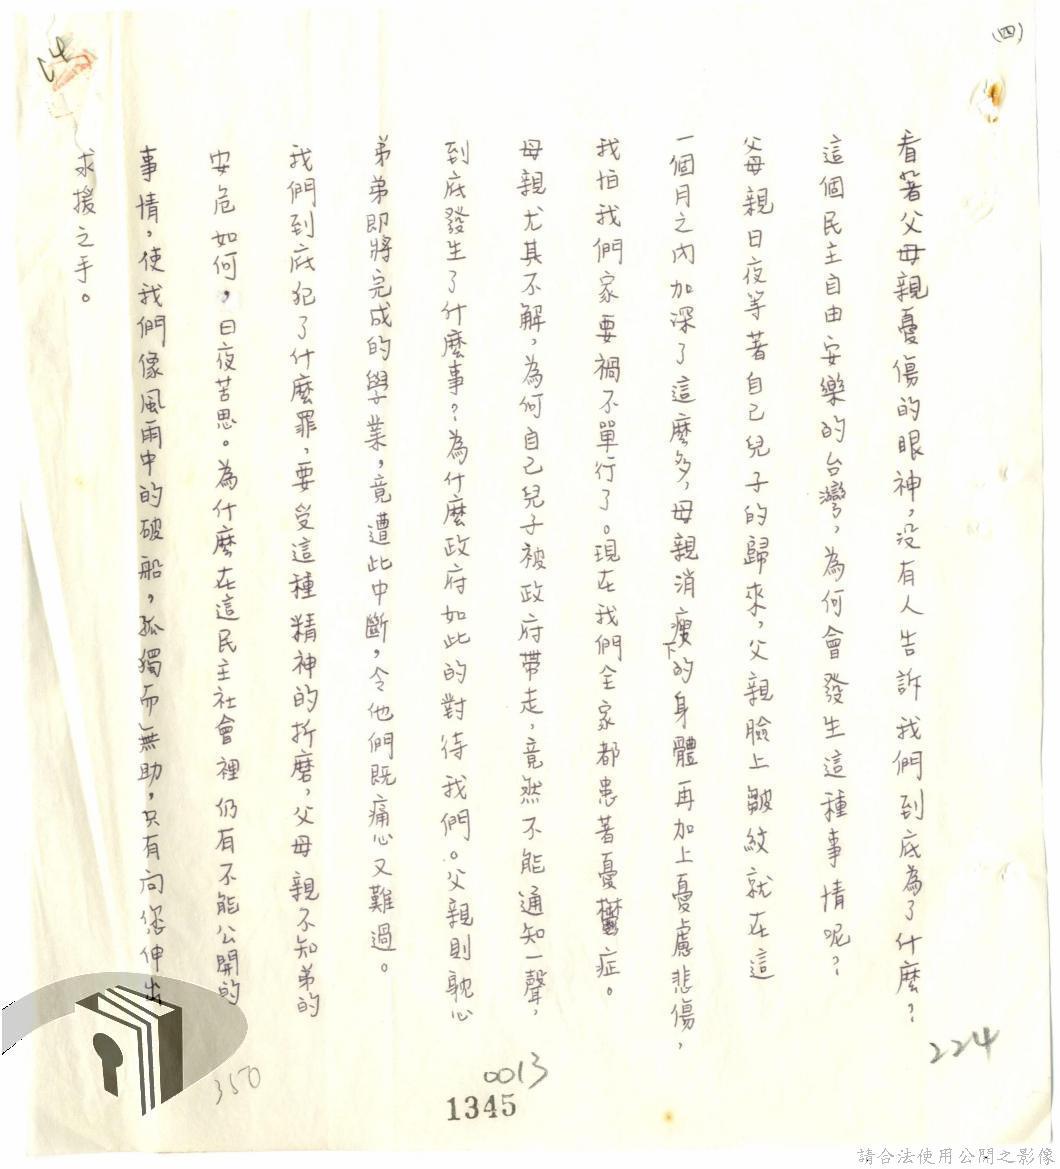 (四)
看著父母親憂傷的眼神，沒有人告訴我們到底為了什麼？
這個民主自由安樂的台灣，為何會發生這種事情呢？
父母親日夜等著自己兒子的歸來，父親臉上皺紋就在這
一個月之內加深了這麼多，母親消瘦下的身體再加上憂慮悲傷，
我怕我們家要禍不單行了。現在我們全家都患著憂鬱症。
母親尤其不解，為何自己兒子被政府帶走，竟然不能通知一聲，
到底發生了什麼事？為什麼政府如此的對待我們。父親則耽心
弟弟即將完成的學業，竟遭此中斷，令他們既痛心又難過。
我們到底犯了什麼罪，要受這種精神的折磨，父母親不知弟的
安危如何，日夜苦思。為什麼在這民主社會裡仍有不能公開的
事情，使我們像風雨中的破船，孤獨而無助，只有向您伸出
求援之手。
224
0013
1345
350
請合法使用公開之影像